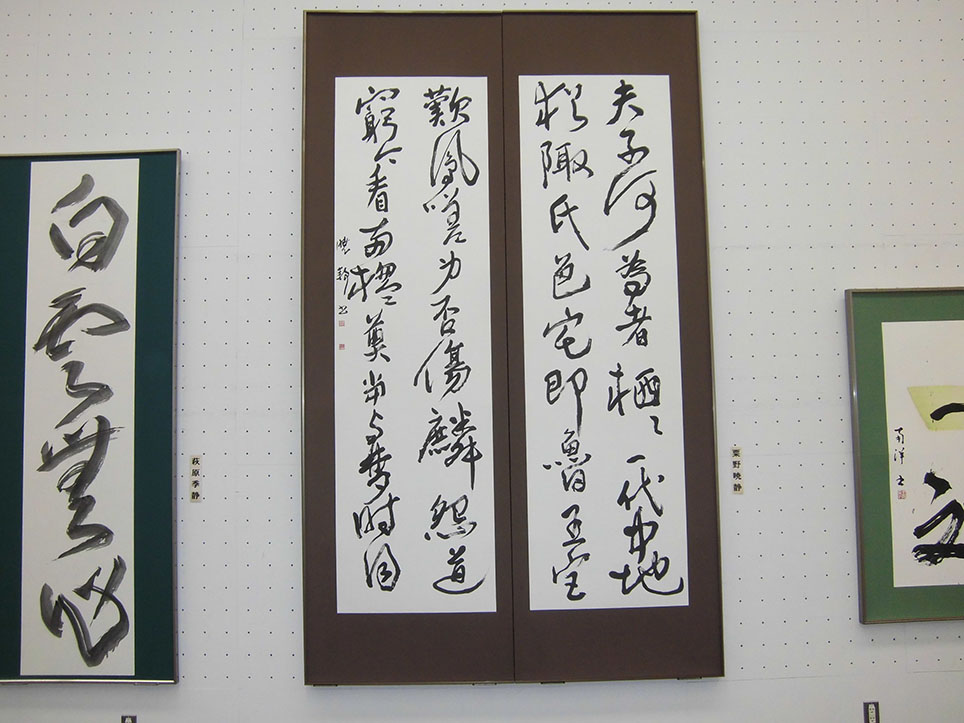 夫子何為者栖〻一代中地
猶陬氏邑宅即魯王宮
歎鳳嗟身否傷麟怨道
窮今看両楹奠當与夢時同
粟野暁静
萩原季静
白雲無心